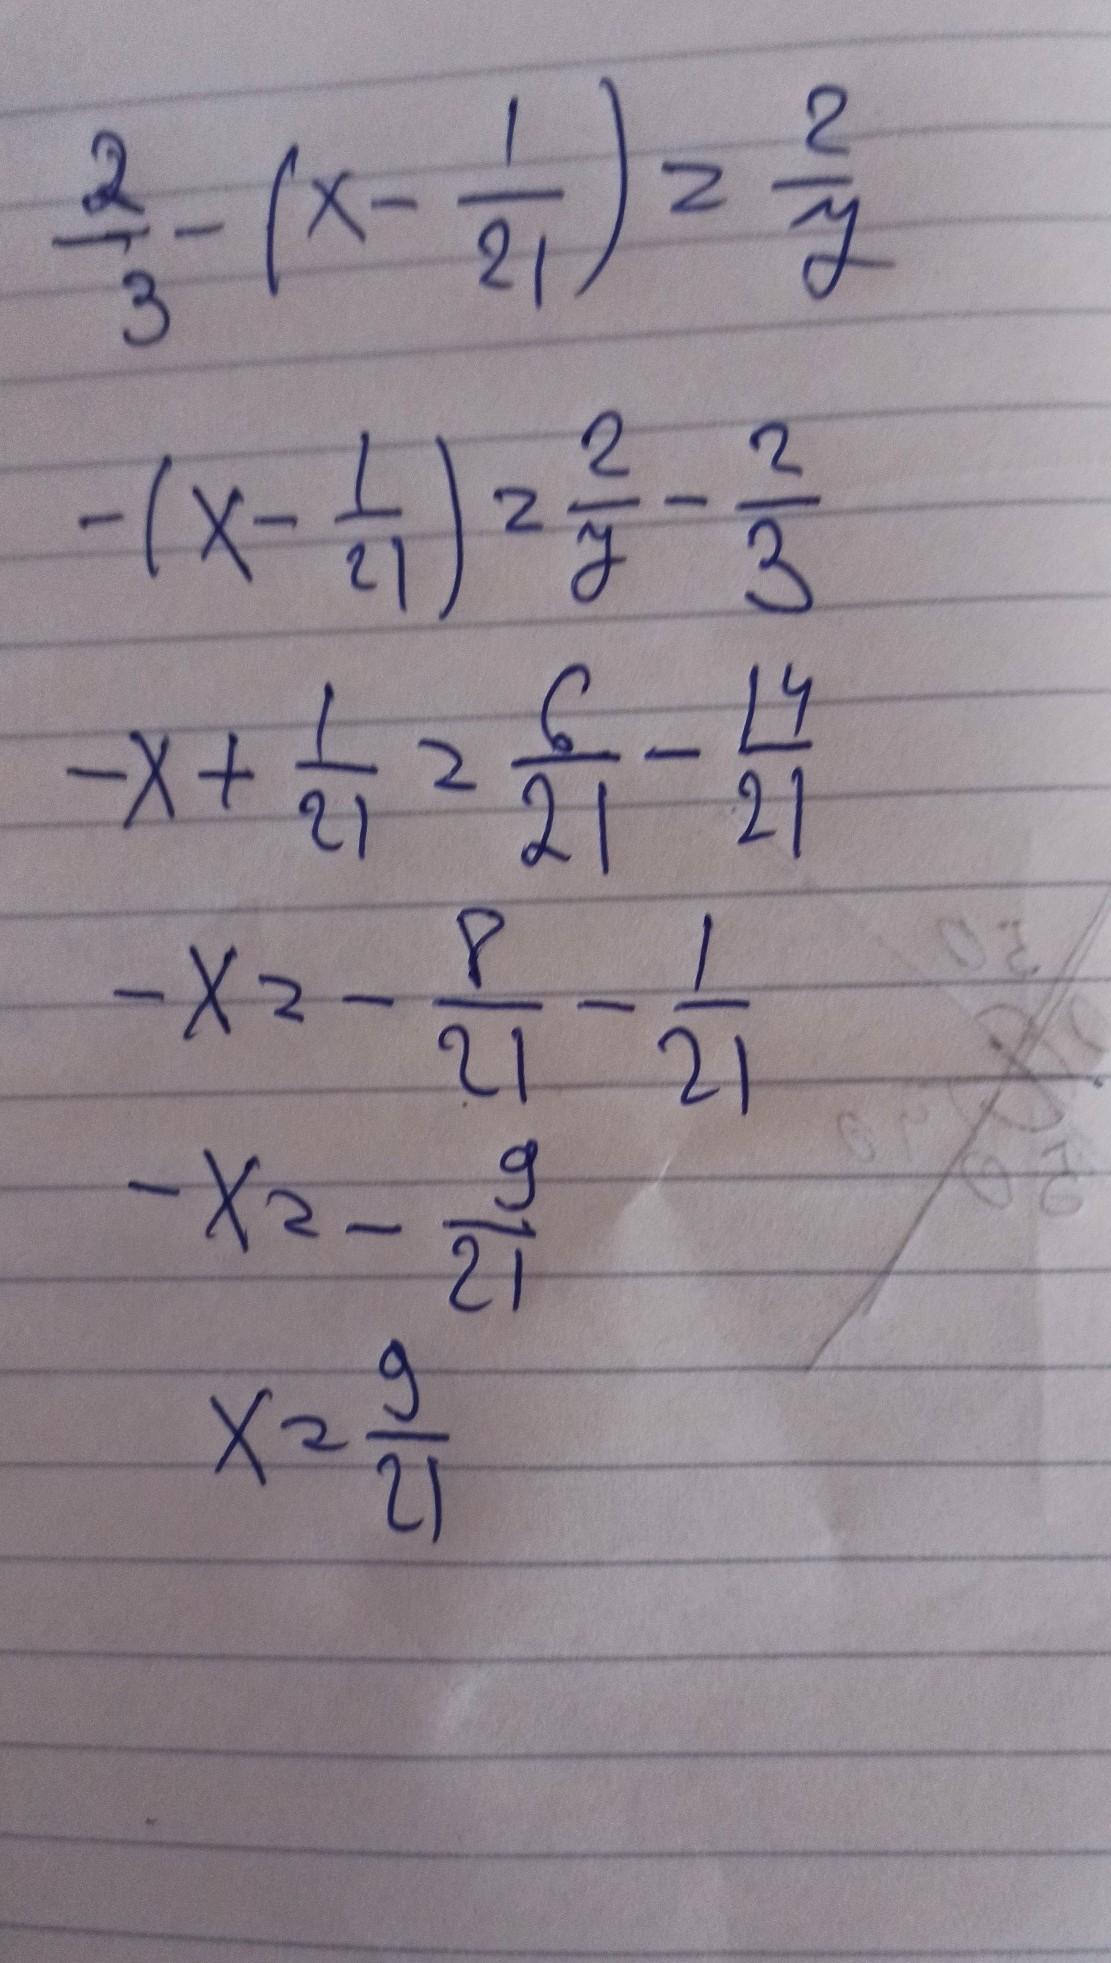 2/3 - (x - 1/21) = 2/7
-(x - 1/21) = 2/7 - 2/3
-x + 1/21 = 6/21 - 14/21
-x = - 8/21 - 1/21
-x = - 9/21
x = 9/21